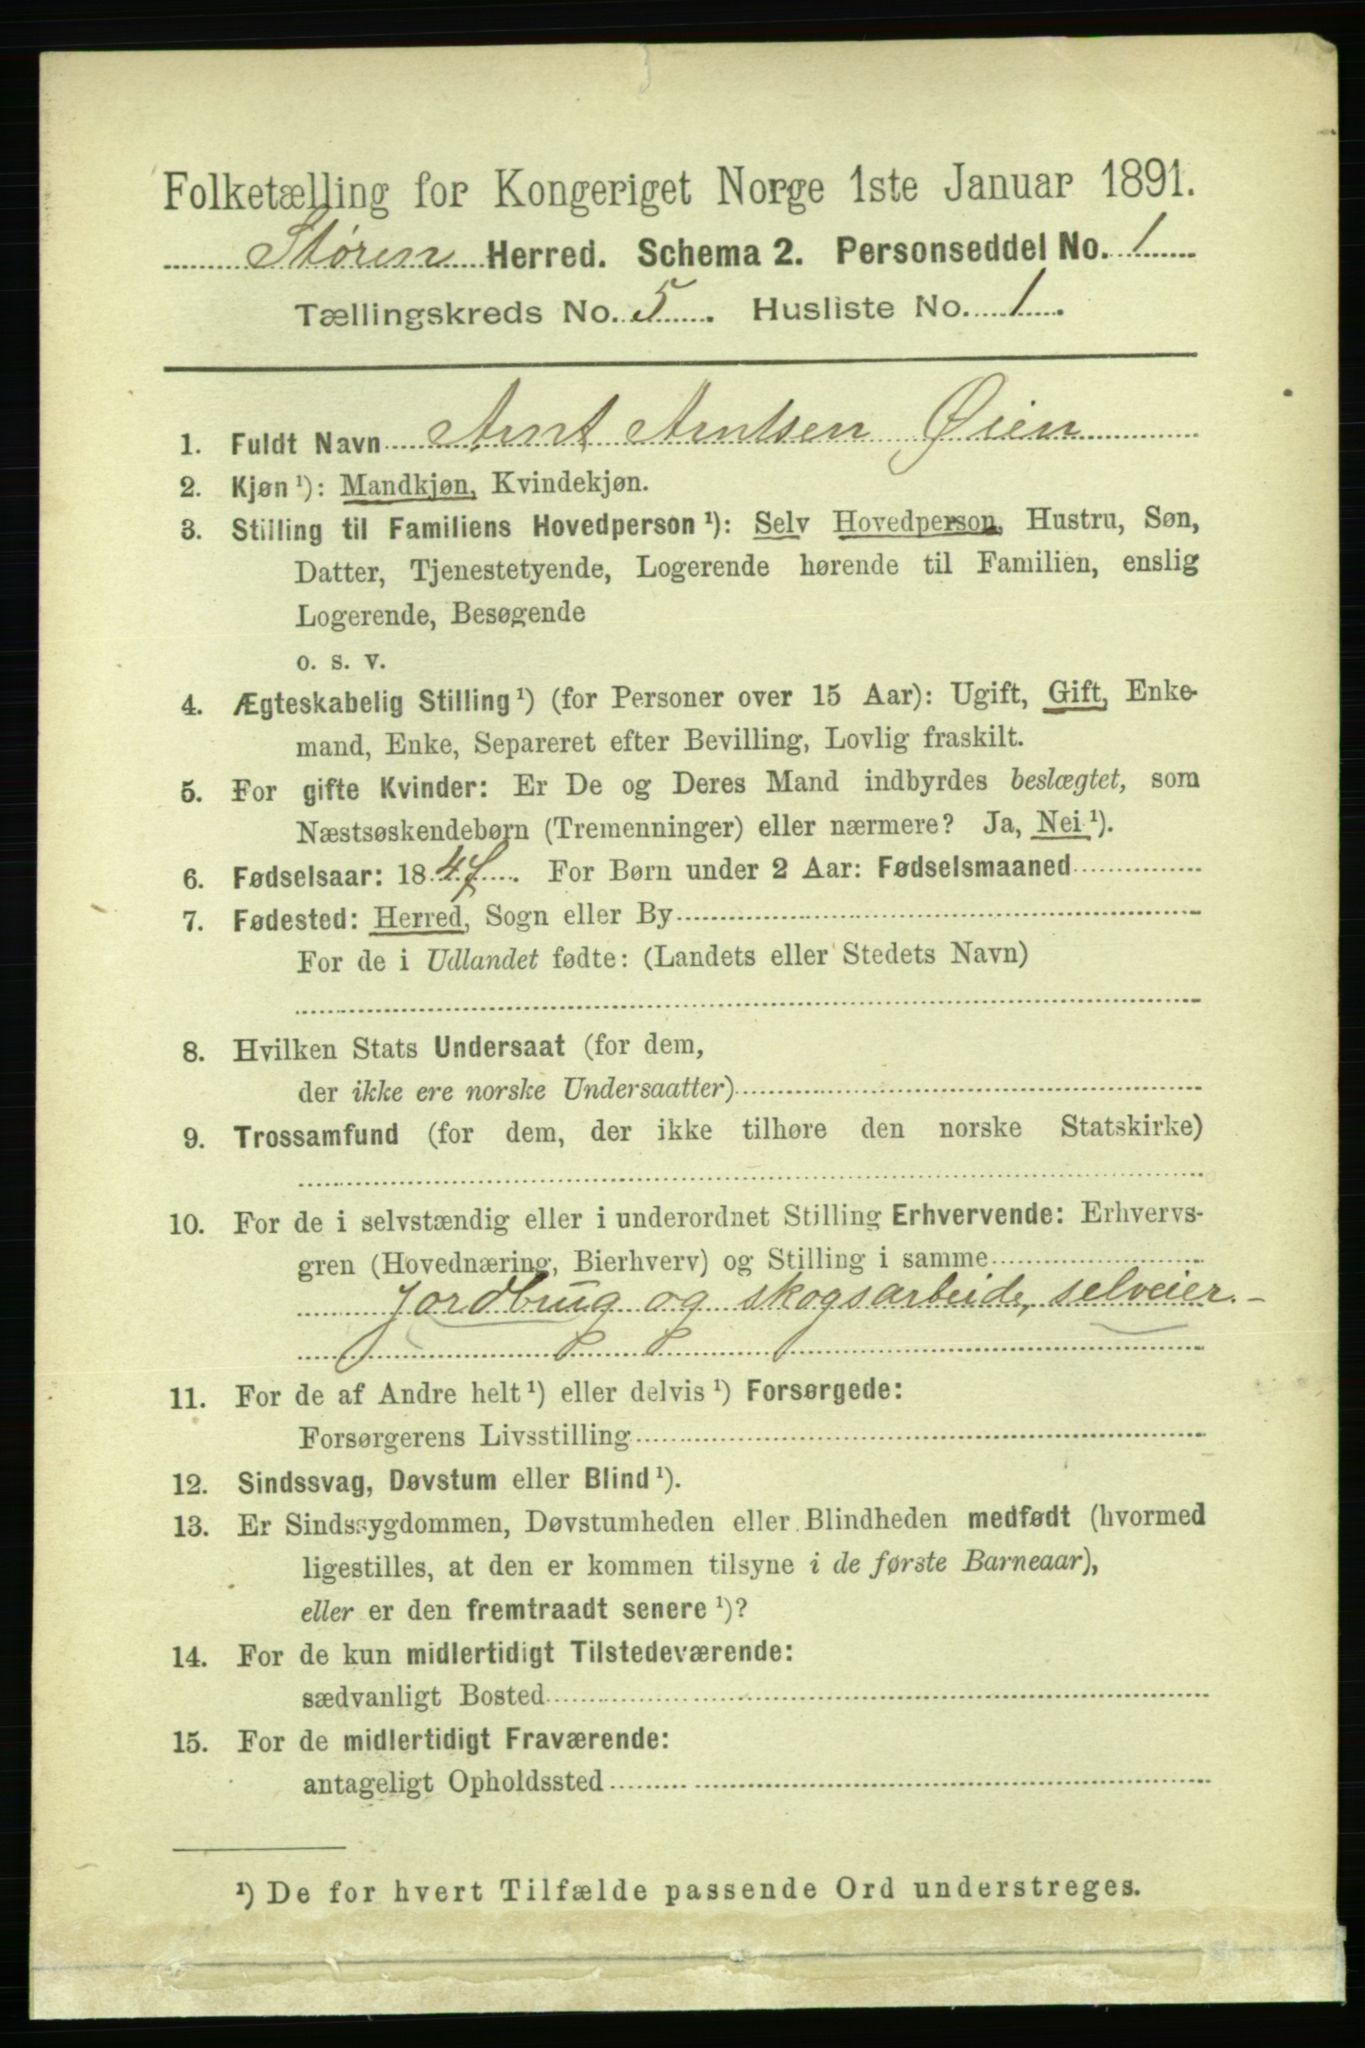 Folketælling for Kongeriget Norge 1ste Januar 1891.
Støren Herred. Schema 2. Personseddel No. 1
Tællingskreds No. 5. Husliste No. 1.
1. Fuldt Navn Arnt Arntsen Øien
2. Kjøn ¹): Mandkjøn, Kvindekjøn.
3. Stilling til Familiens Hovedperson ¹): Selv Hovedperson, Hustru, Søn,
Datter, Tjenestetyende, Logerende hørende til Familien, enslig
Logerende, Besøgende
o. s. v.
4. Ægteskabelig Stilling ¹) (for Personer over 15 Aar): Ugift, Gift, Enke-
mand, Enke, Separeret efter Bevilling, Lovlig fraskilt.
5. For gifte Kvinder: Er De og Deres Mand indbyrdes beslægtet, som
Næstsøskendebørn (Tremenninger) eller nærmere? Ja, Nei ¹).
6. Fødselsaar: 1847. For Børn under 2 Aar: Fødselsmaaned
7. Fødested: Herred, Sogn eller By
For de i Udlandet fødte: (Landets eller Stedets Navn)
8. Hvilken Stats Undersaat (for dem,
der ikke ere norske Undersaatter)
9. Trossamfund (for dem, der ikke tilhøre den norske Statskirke)
10. For de i selvstændig eller i underordnet Stilling Erhvervende: Erhvervs-
gren (Hovednæring, Bierhverv) og Stilling i samme
Jordbrug og skogsarbeide, selveier.-
11. For de af Andre helt ¹) eller delvis ¹) Forsørgede:
Forsørgerens Livsstilling
12. Sindssvag, Døvstum eller Blind ¹).
13. Er Sindssygdommen, Døvstumheden eller Blindheden medfødt (hvormed
ligestilles, at den er kommen tilsyne i de første Barneaar),
eller er den fremtraadt senere ¹)?
14. For de kun midlertidigt Tilstedeværende:
sædvanligt Bosted
15. For de midlertidigt Fraværende:
antageligt Opholdssted
¹) De for hvert Tilfælde passende Ord understreges.